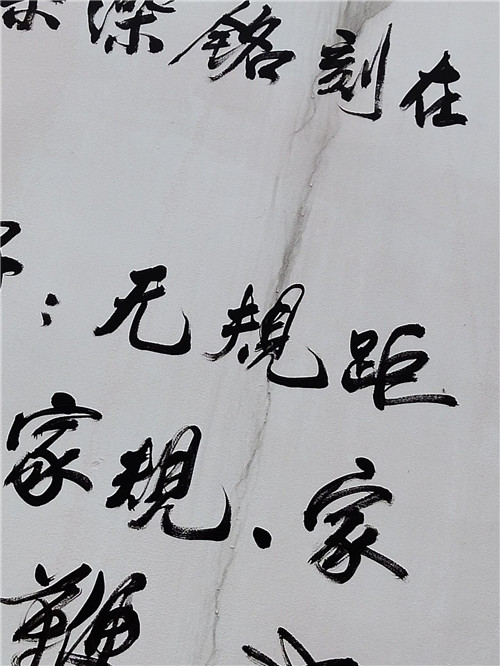 深深铭刻在
：无规距
家规、家
鞭